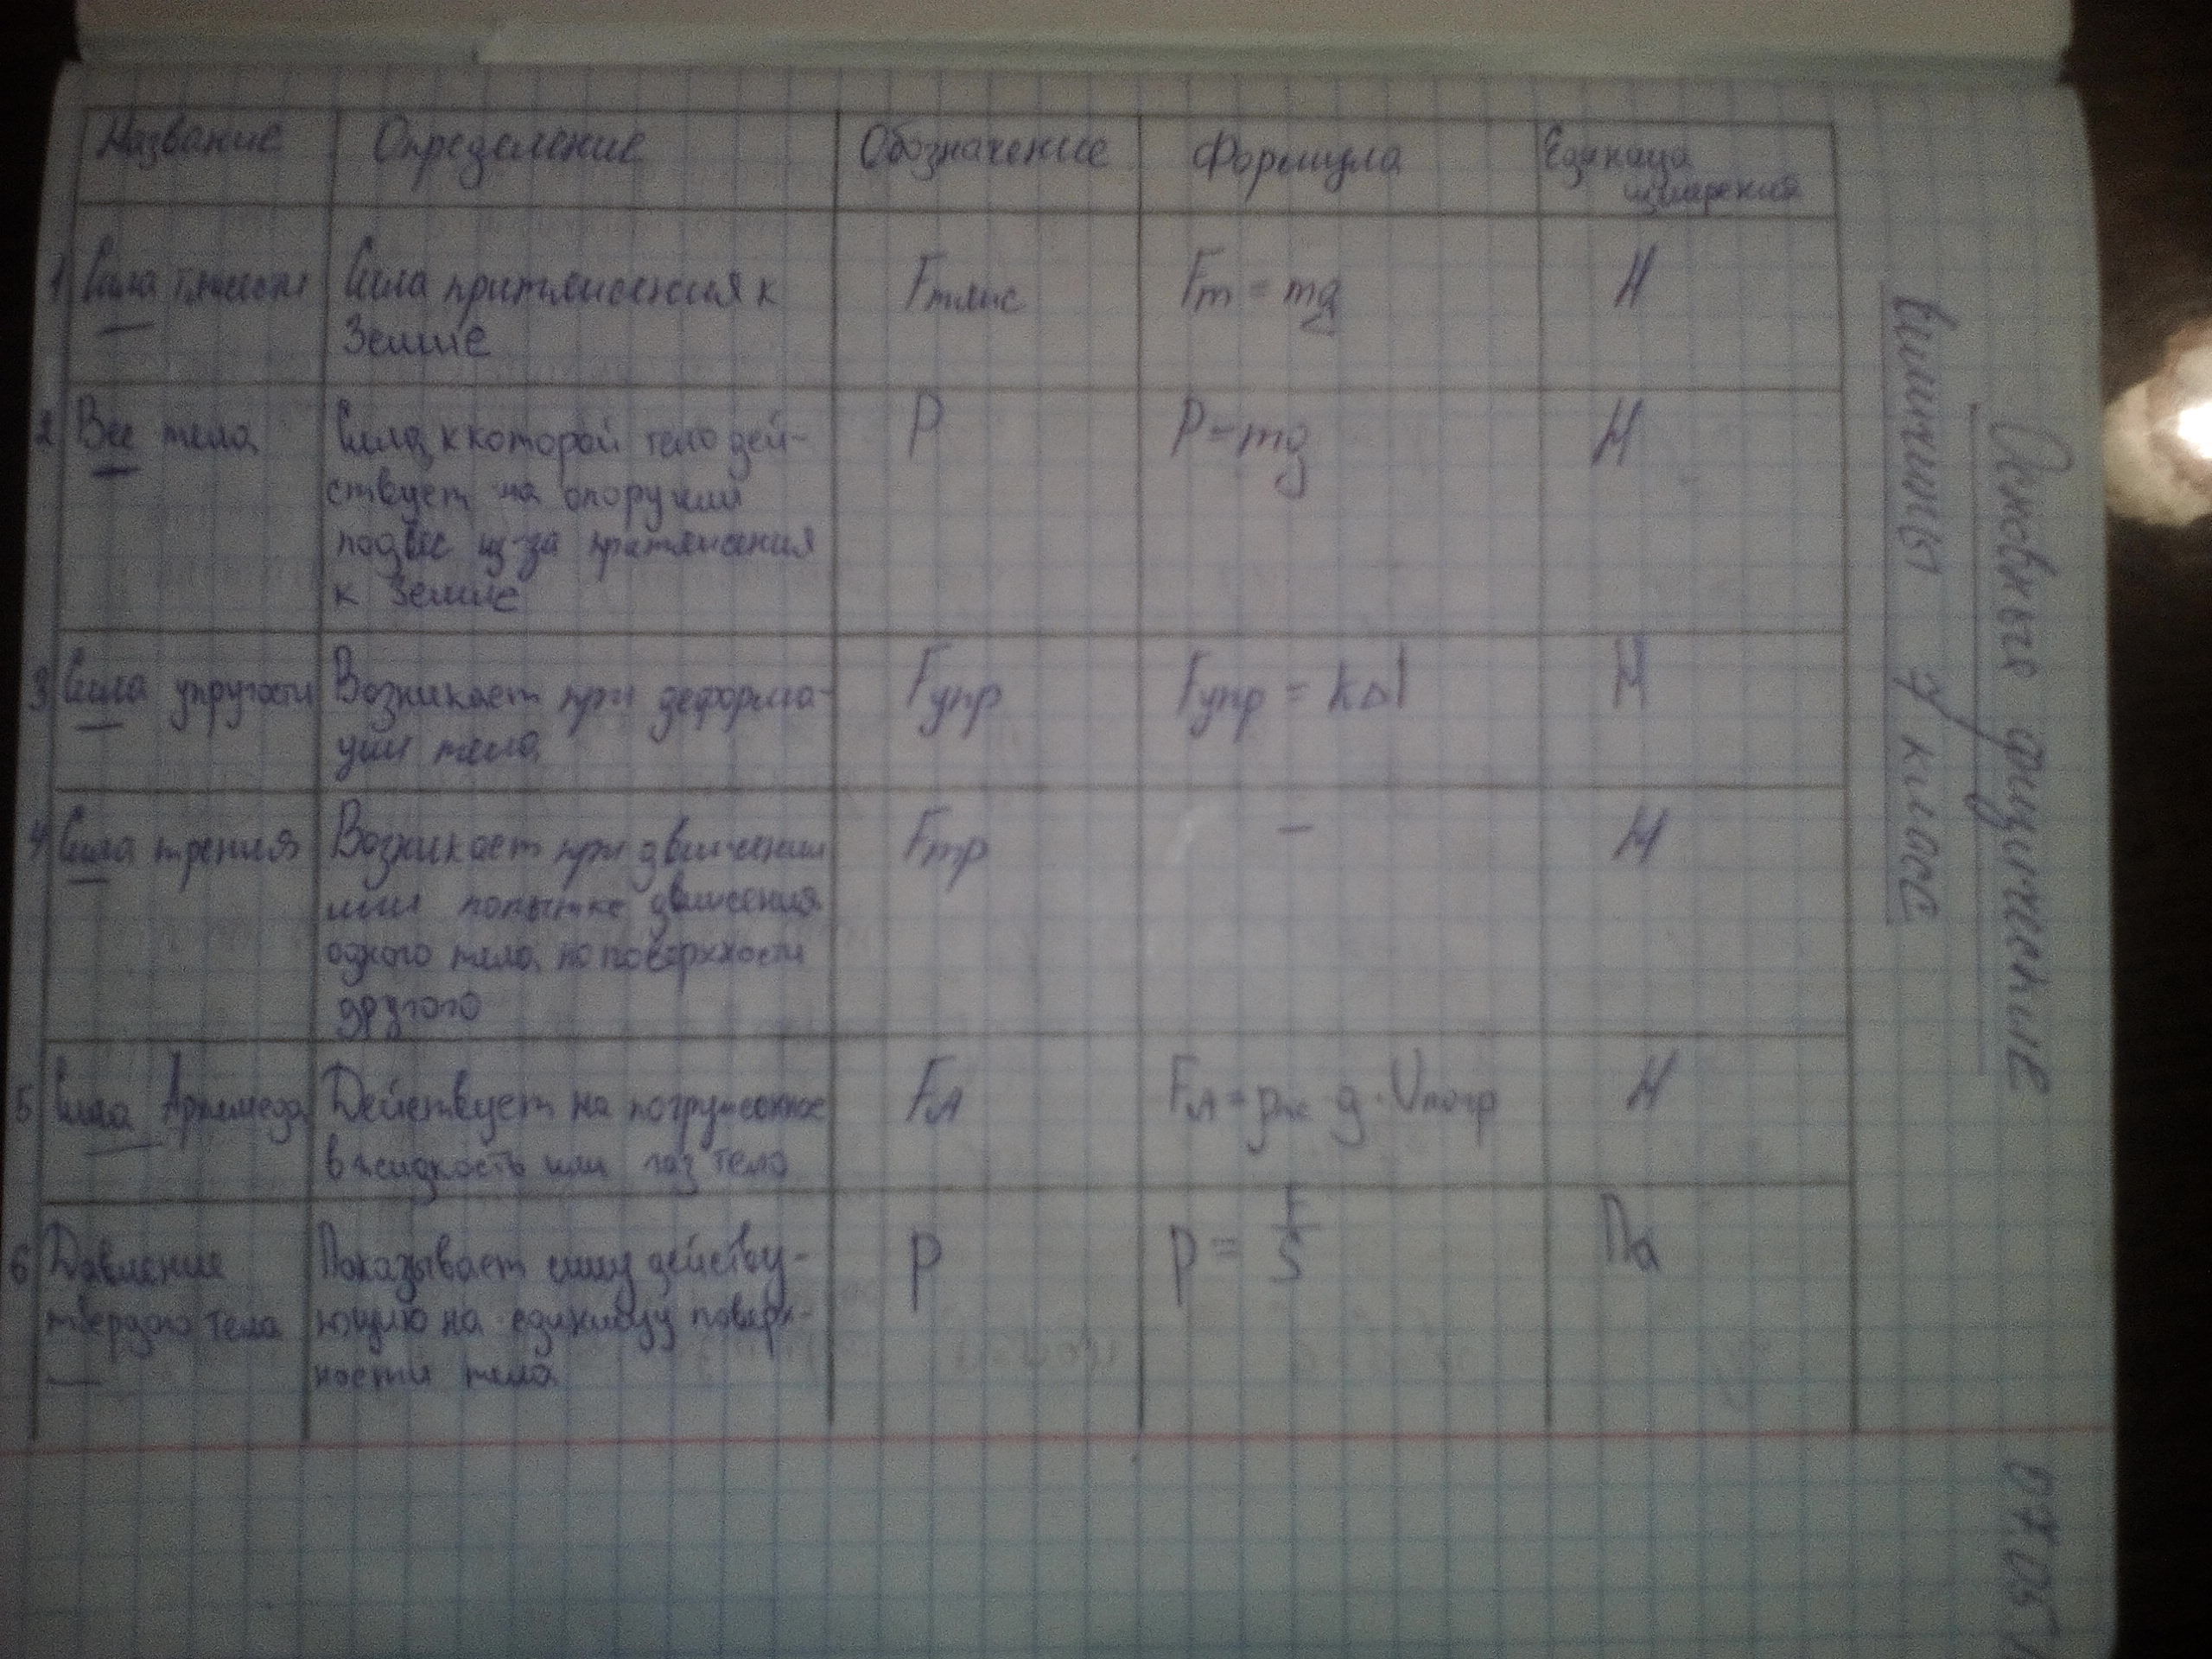 Основные физические
величины 7 класса
07.05
Название Определение Обозначение Формула Единица
измерения
1 Сила тяжести Сила притяжения к Fтяж Fт = mg Н
Земле
2 Вес тела Сила, с которой тело дей-
ствует на опору или
подвес из-за притяжения
к Земле
P P=mg Н
3 Сила упругости Возникает при деформа-
ции тела
Fупр Fупр = kΔl Н
4 Сила трения Возникает при движении
или попытке движения
одного тела по поверхности
другого
Fтр - Н
5 Сила Архимеда Действует на погруженное
в жидкость или газ тело
FА FА = ρж g · Vпогр Н
6 Давление
твердого тела
Показывает силу действу-
ющую на единицу поверх-
ности тела
p p = F/S Па